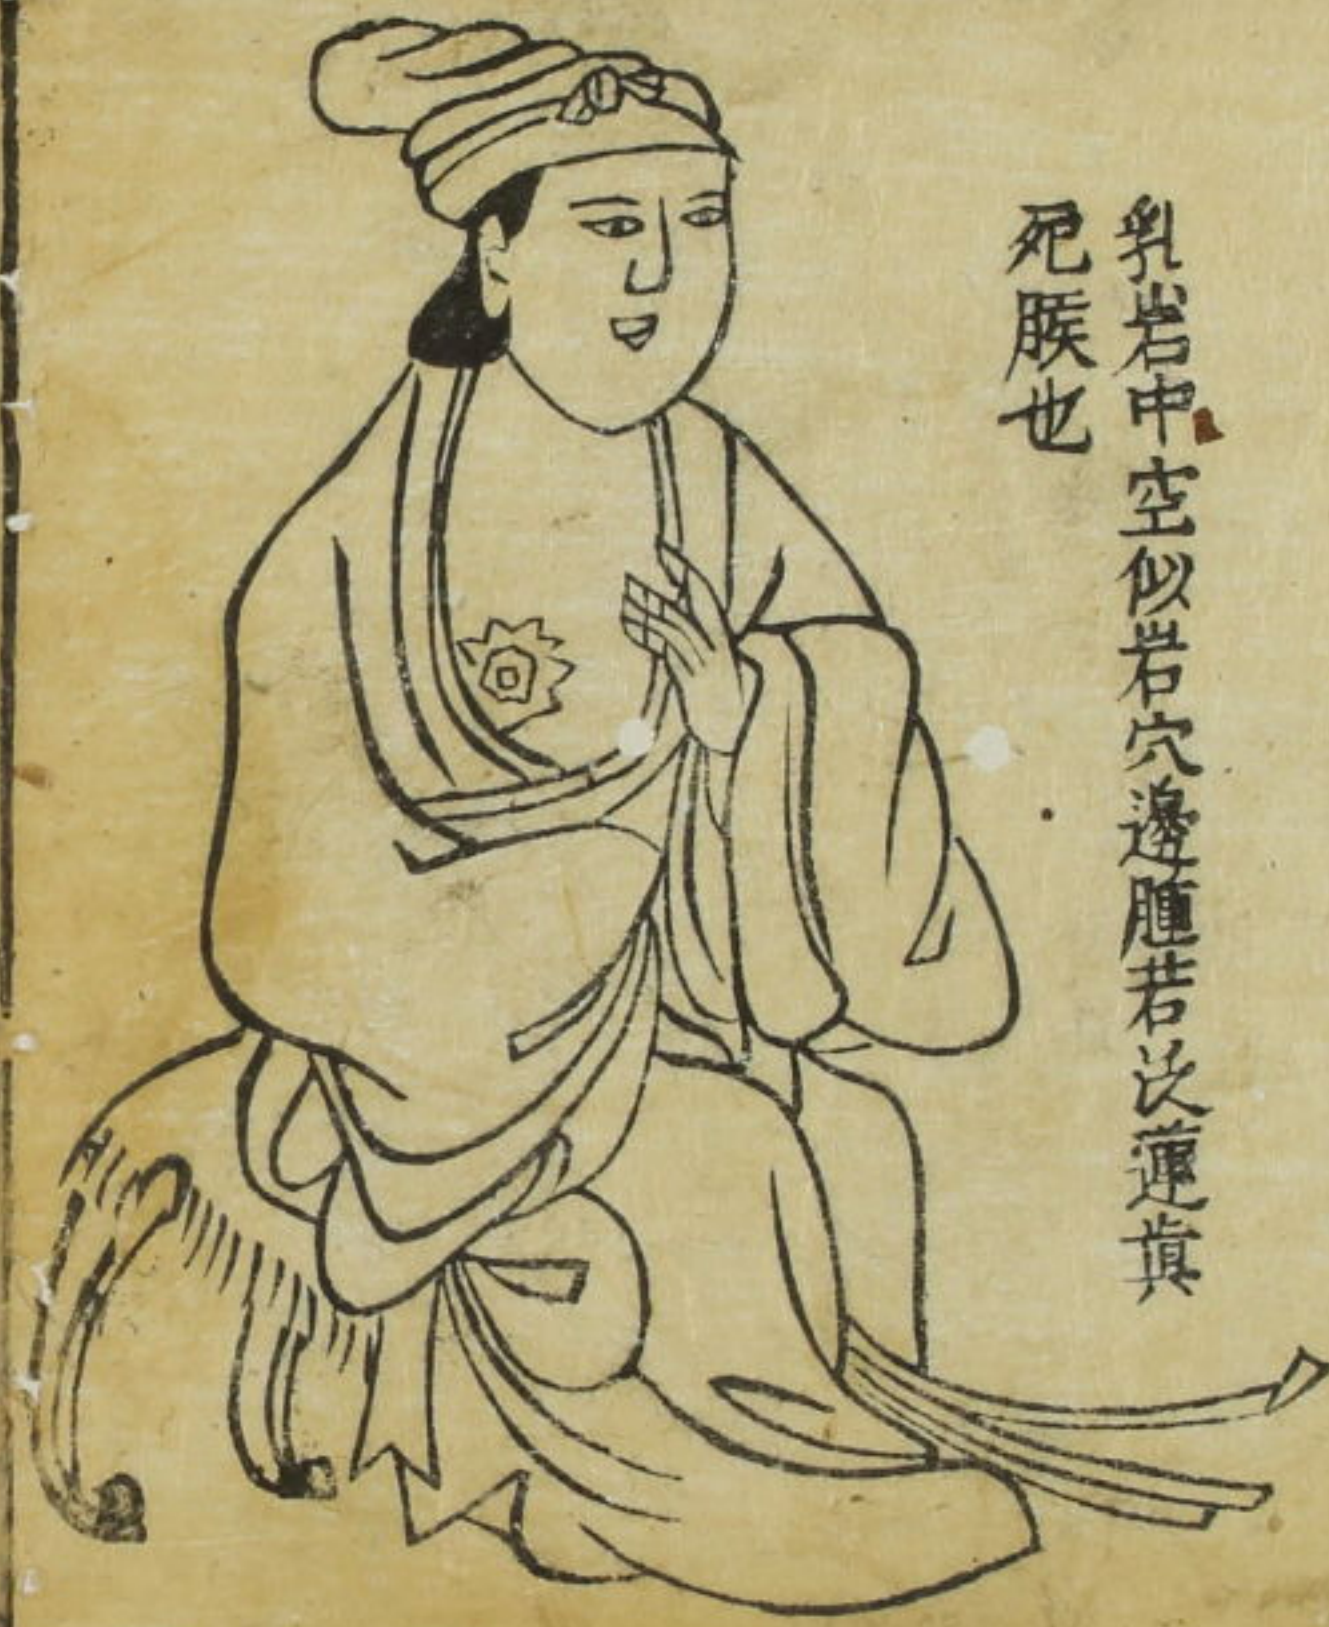 乳岩中空似岩穴邊腫若泛蓮眞
死也